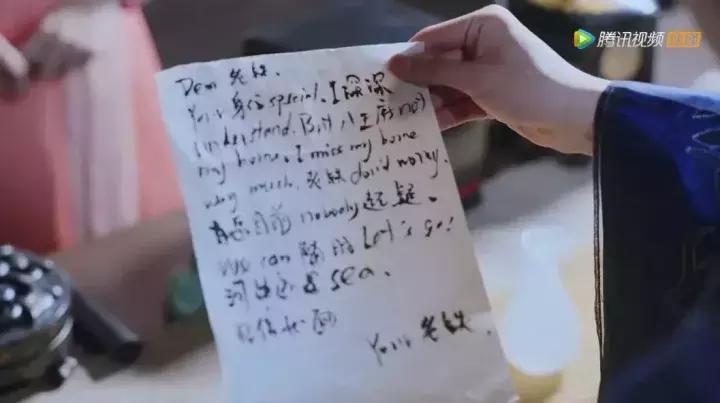 腾讯视频
Dear 老铁.
Your 身份 special. I 深深
understand. But 八王府 not
my home. I miss my home
very much. 老铁 don't worry.
目前 nobody 起疑.
We can 随时 Let's go!
河 sea.
Your 老铁.